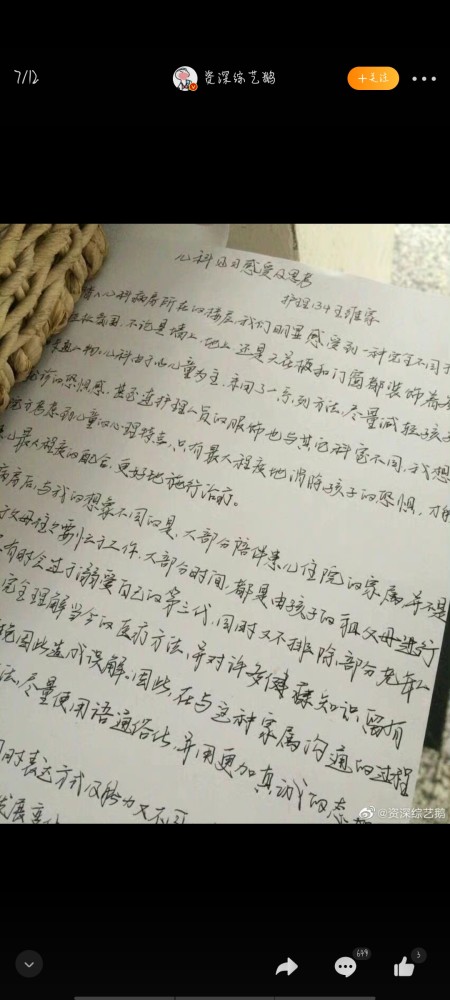 7/12
资深综艺鹅
+关注
儿科见习感受及思考
护理134 王维家
儿科病房所在的楼层,我们明显感受到一种完全不同于
氛围,不论是墙上、地上还是天花板和门窗都装饰着
卡通人物。儿科由于以儿童为主,采用了一系列方法,尽量减轻孩子
的恐惧感,甚至连护理人员的服饰也与其它科室不同。我想
考虑到儿童的心理特点,只有最大程度地消除孩子的恐惧,才
最大程度的配合,更好地施行治疗。
病房后,与我的想象不同的是,大部分陪伴患儿住院的家属并不是
父母往往要忙于工作,大部分时间,都是由孩子的祖父母进行
有时会过于溺爱自己的第三代,同时又不排除,部分老年人
完全理解当今的医疗方法,并对许多健康知识留有
因此造成误解。因此,在与这种家属沟通的过程
法,尽量使用语通俗化,并用更加真诚的态
时表达方式及能力又不可
发展
@资深综艺鹅
679
3